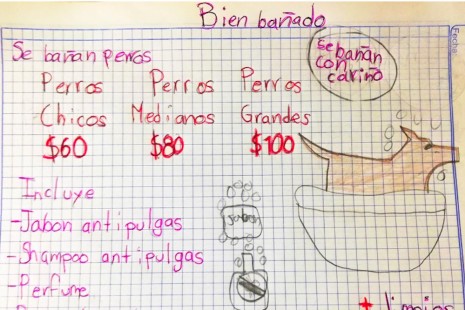 Bien bañado
Fecha:
Se bañan perros
se bañan
con
cariño
Perros Perros Perros
Chicos Medianos Grandes
$60 $80 $100
Incluye
-Jabon antipulgas
-Shampoo antipulgas
-Perfume
Jabon
+ limpios